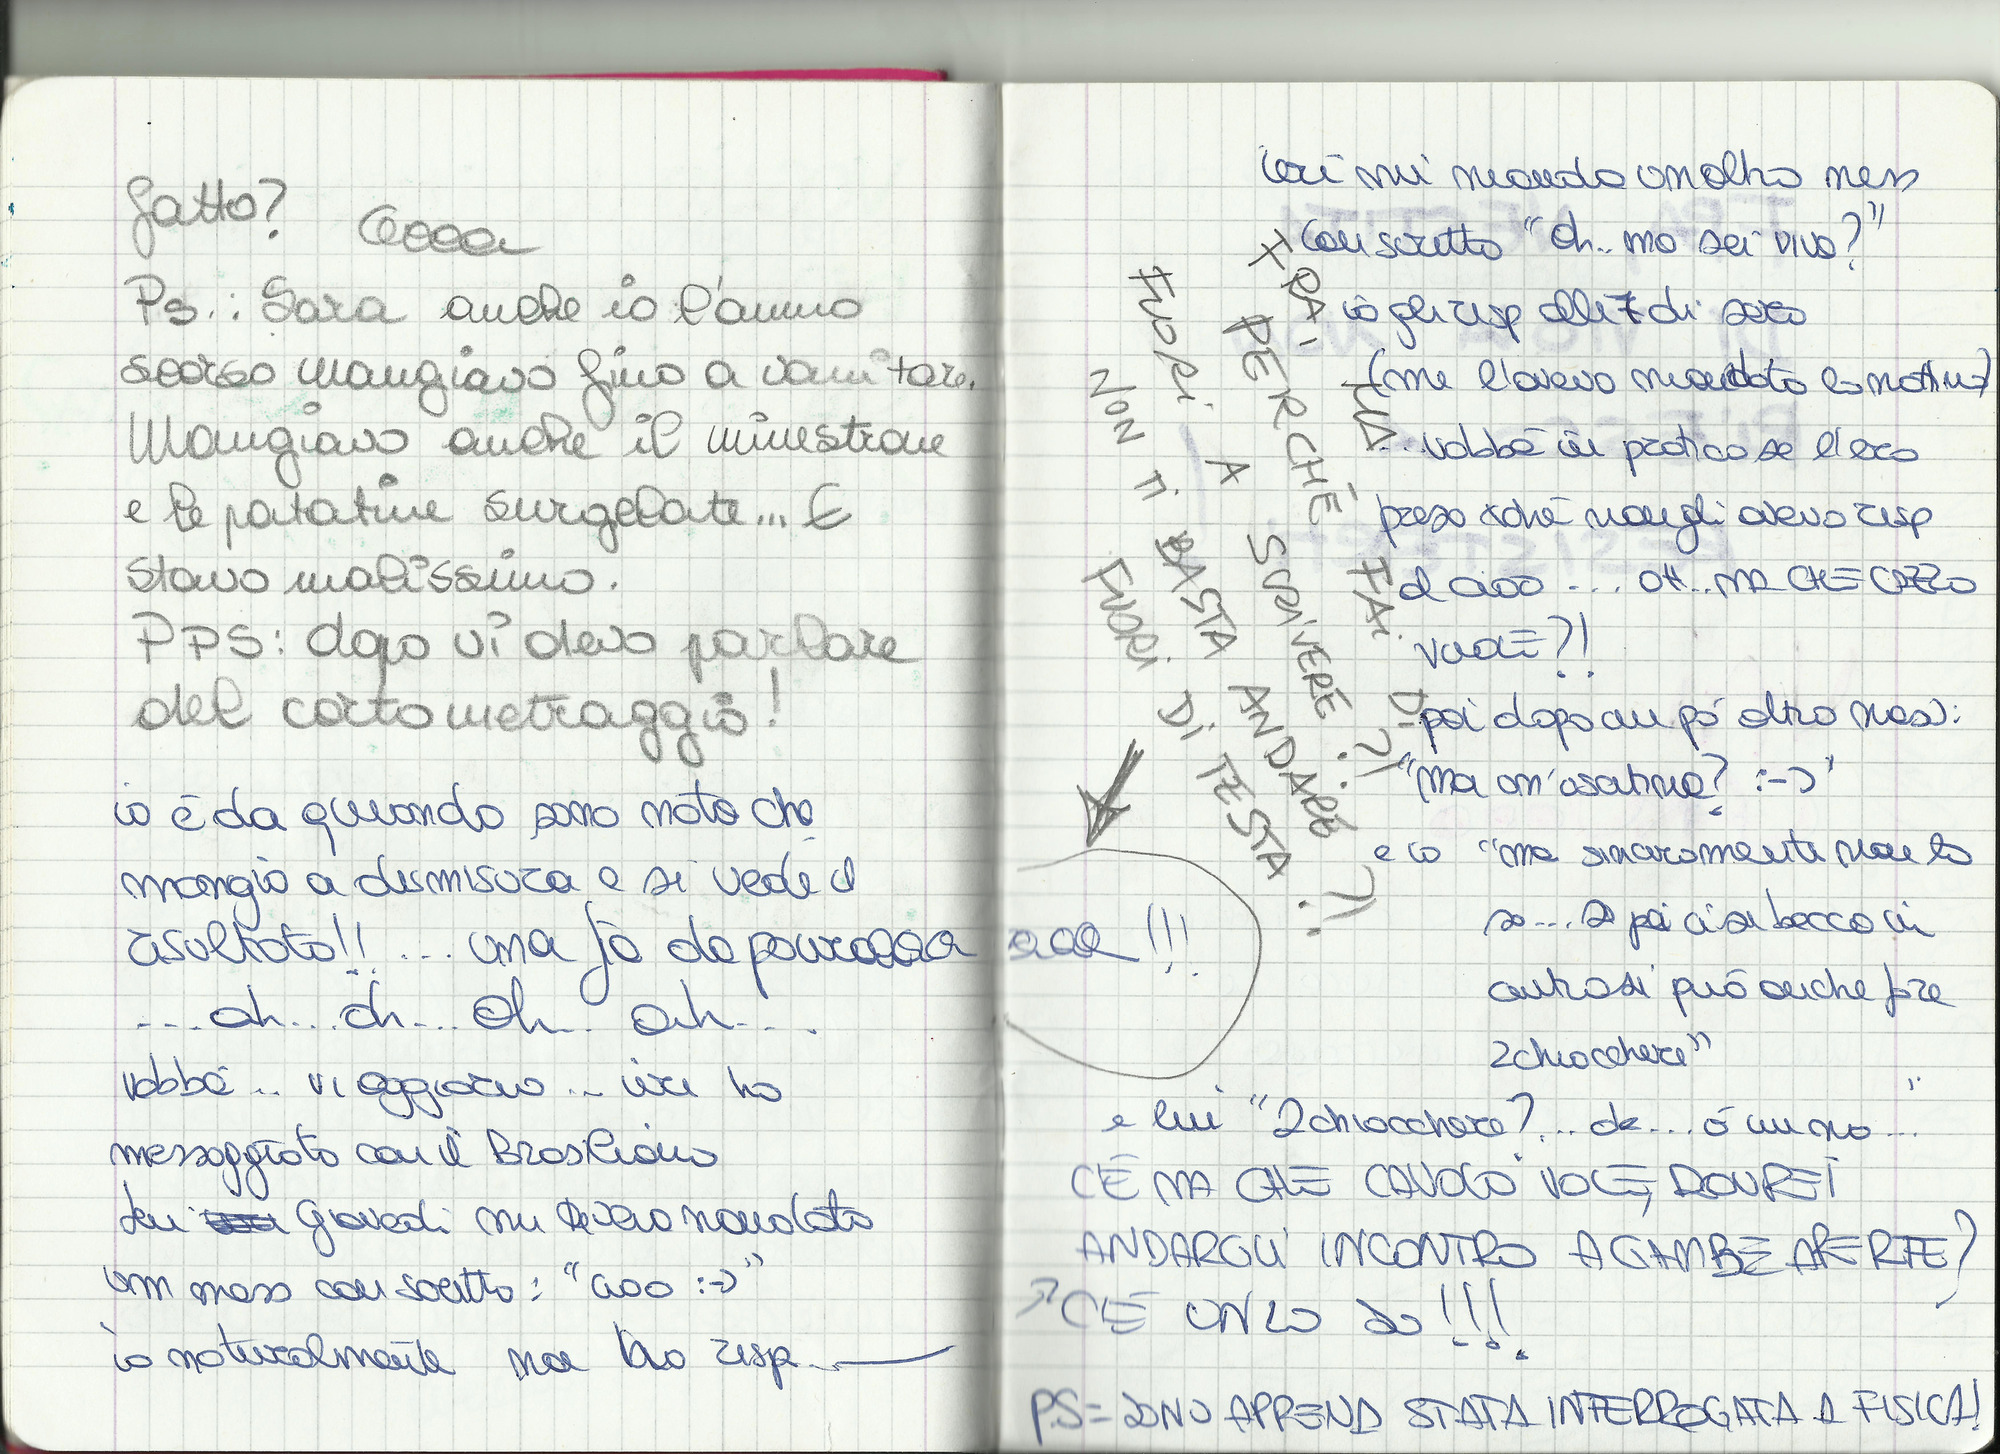 fatto? Cecca
Ps.: Sara anche io l'anno
scorso mangiavo fino a vomitare.
Mangiavo anche il minestrone
e le patatine surgelate... E
stavo malissimo.
PPS: dopo vi devo parlare
del cortometraggio!
io è da quando sono nata che
mangio a dismisura e si vede il
risultato!! ... una fa da pauraaaa
aaa!!!
....ah...ah...ah... ah....
vabbè .. vi aggiorno ... ieri ho
messaggiato con il Brasiliano
Giovedì mi aveva mandato
un mess con scritto: "aoo :-)"
io naturalmente non l'ho resp...
ieri mi manda un altro mess
con scritto "oh.. ma sei viva?"
io gli resp alle 7 di sera
(me l'aveva mandato la mattina)
...vabbè in pratica se l'era
presa xché non gli avevo resp
al aoo ... OH.. MA CHE CAZZO
VUOI?!
poi dopo un pò altro mess:
"ma un'usatina? :-)"
e io "ma sinceramente non lo
so... se poi ci si becca in
centro si può anche fare
2 chiacchere"
e lui "2 chiacchere?... de... ó un po ..."
CÈ MA CHE CAVOLO VOLE, DOVREI
ANDARGLI INCONTRO A GAMBE APERTE?
CÈ UN LO SO!!!
PS= SONO APPENA STATA INTERROGATA A FISICA!
TRA. UA. FAI DI
PERCHÉ SCRIVERE ?!
FUORI A BASTA ANDARE ?!
NON TI FUORI DI TESTA !!